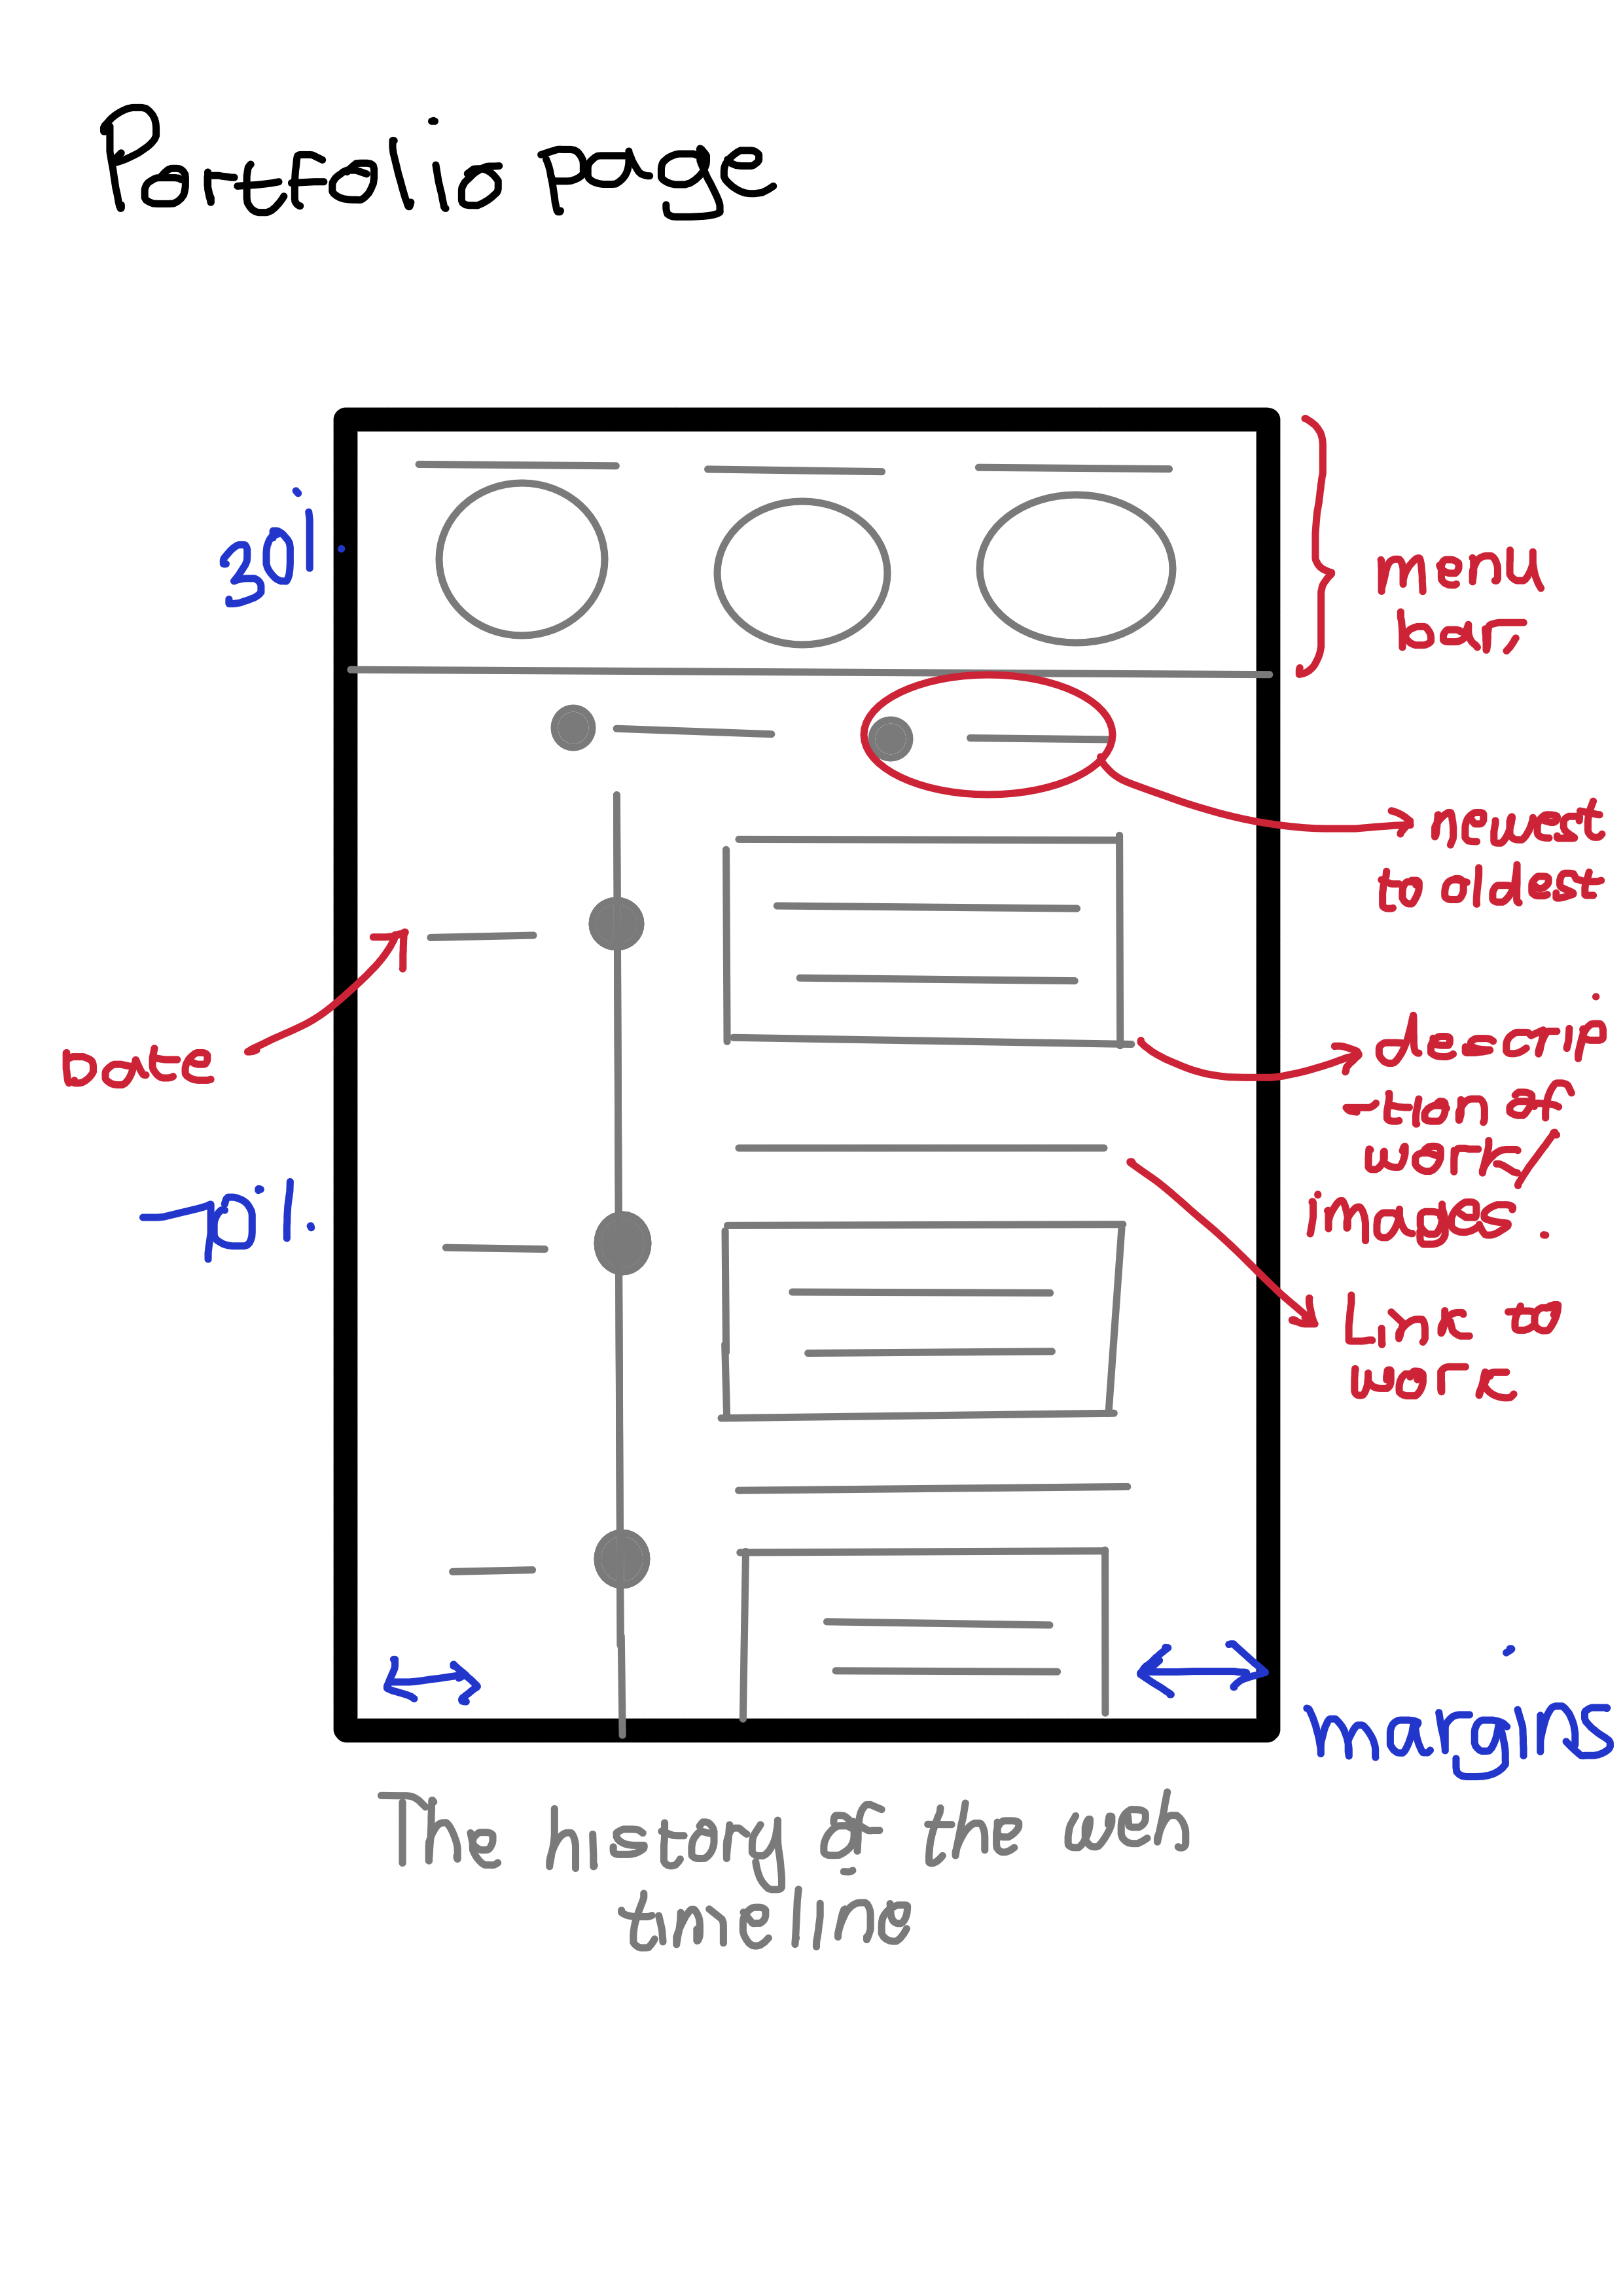 Portfolio page
30%.
menu
bar,
newest
to oldest
Date
descrip
-tion of
work/
images.
70%.
Link to
work
margins
The history of the web
timeline